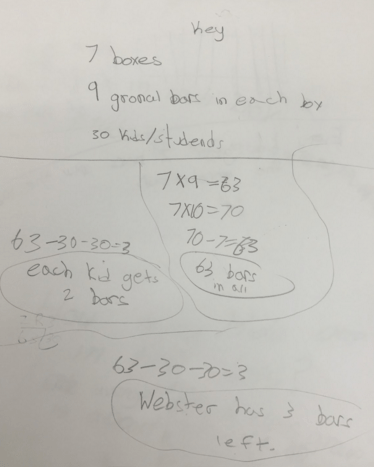 key
7 boxes
9 gronal bars in each by
30 kids/studends
7x9=63
7x10=70
70-7=63
63 bars
in all
63-30-30=3
each kid gets
2 bars
63-30-30=3
Webster has 3 bars
left.